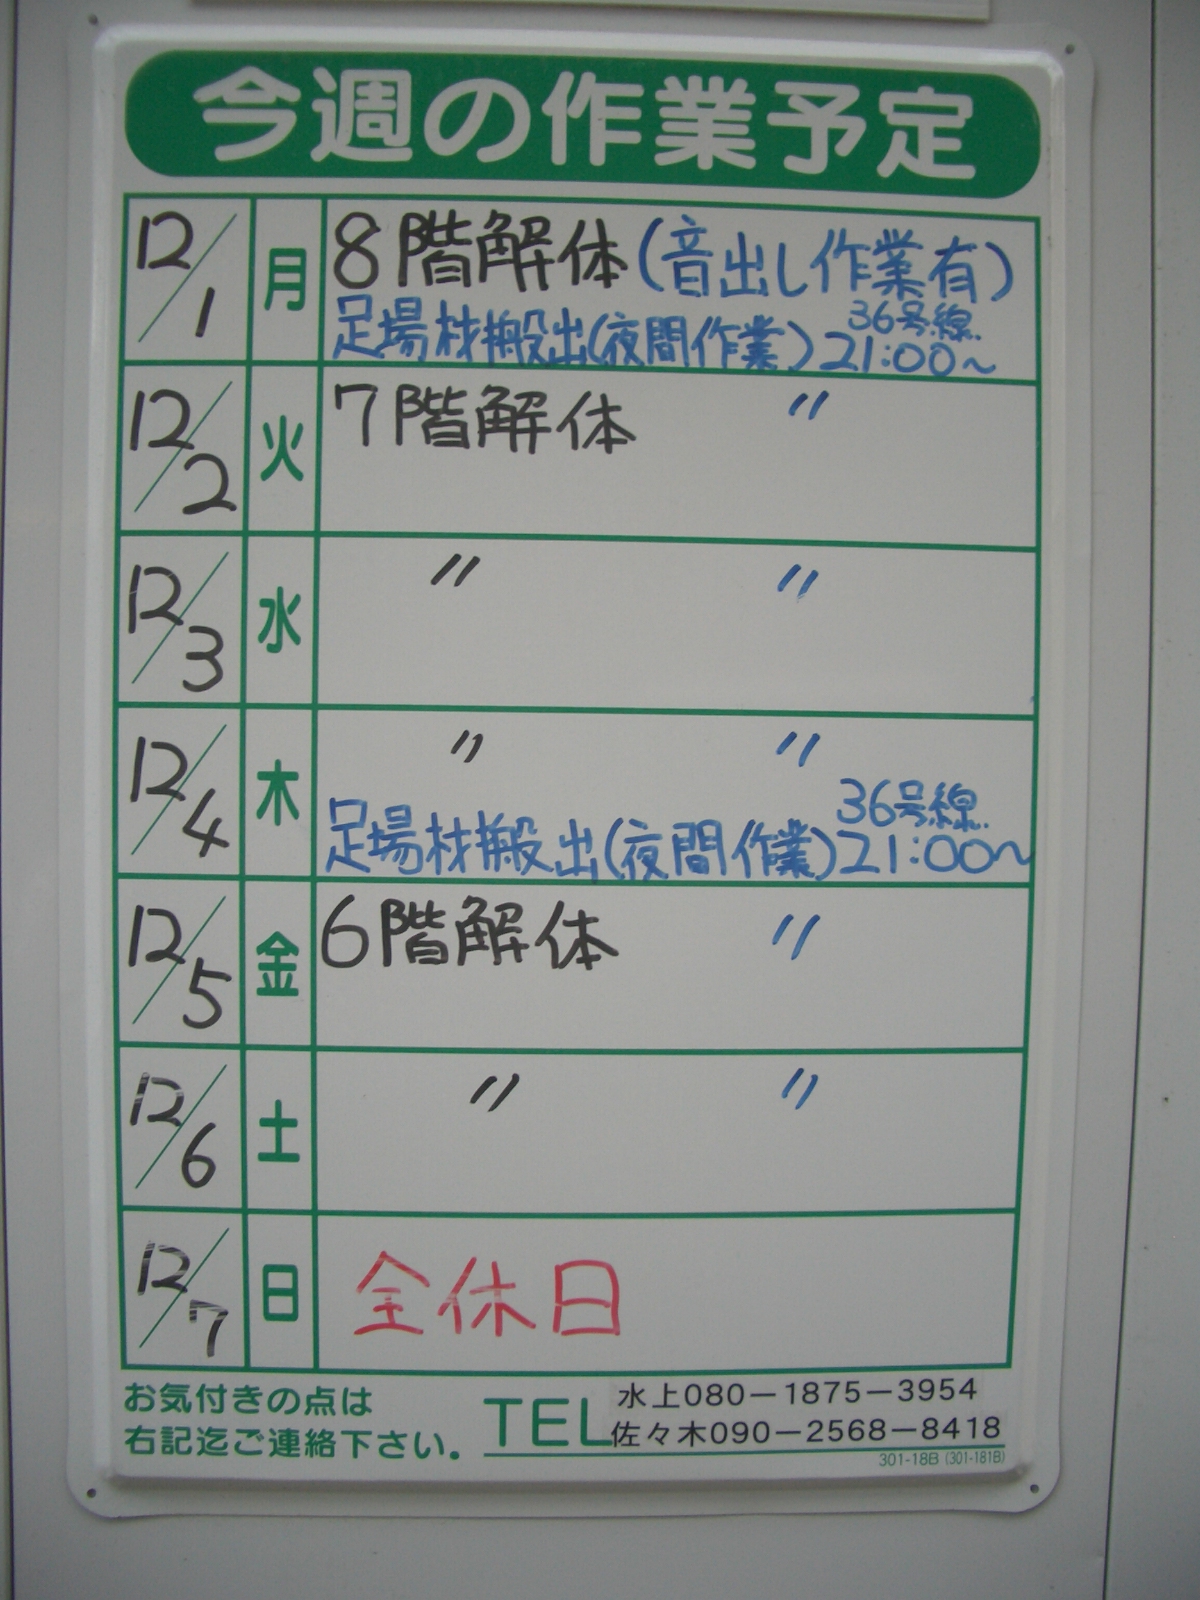 今週の作業予定
12/1 月 8階解体(音出し作業有)
足場材搬出(夜間作業)36号線21:00~
12/2 火 7階解体 〃
12/3 水 〃 〃
12/4 木 〃 〃
足場材搬出(夜間作業)36号線21:00~
12/5 金 6階解体 〃
12/6 土 〃 〃
12/7 日 全休日
お気付きの点は
右記迄ご連絡下さい。
TEL
水上080-1875-3954
佐々木090-2568-8418
301-18B (301-181B)